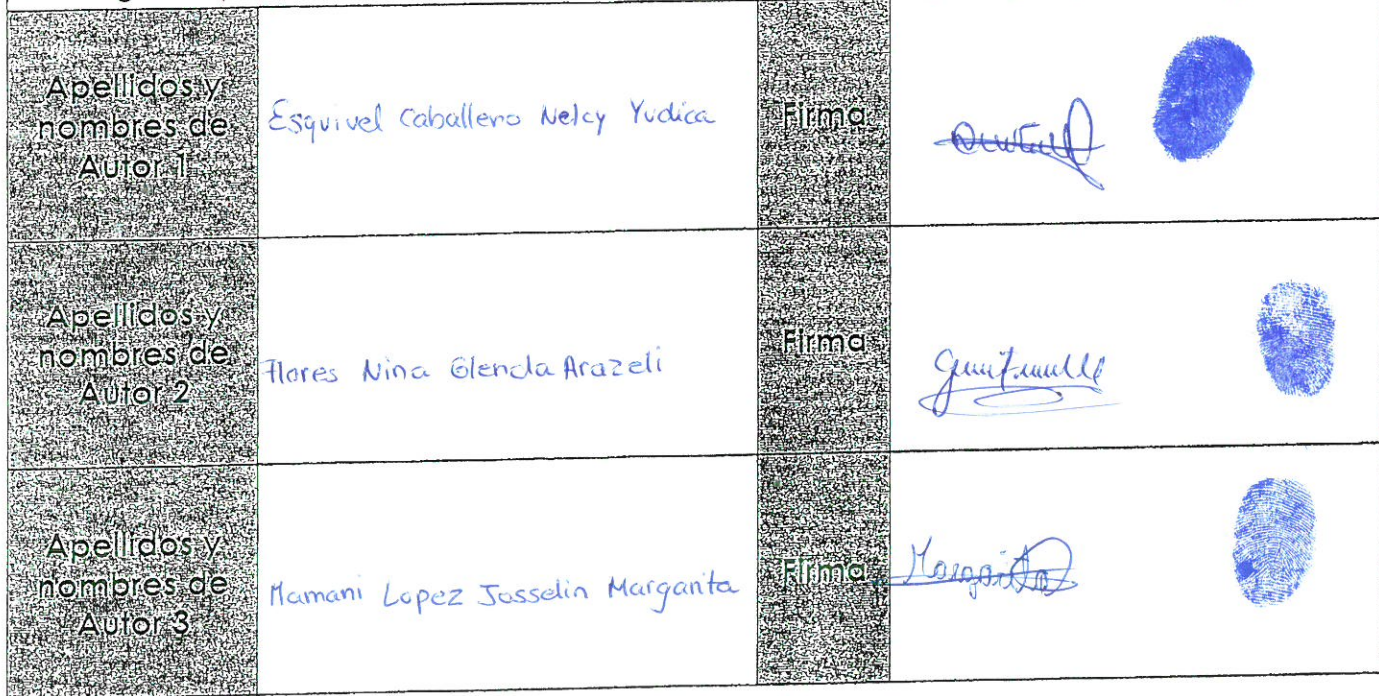 Apellidos y
nombres de
Autor 1
Esquivel Caballero Nelcy Yudica
Firma
Apellidos y
nombres de
Autor 2
Flores Nina Glenda Arazeli
Firma
Apellidos y
nombres de
Autor 3
Mamani Lopez Josselin Margarita
Firma
Margarita